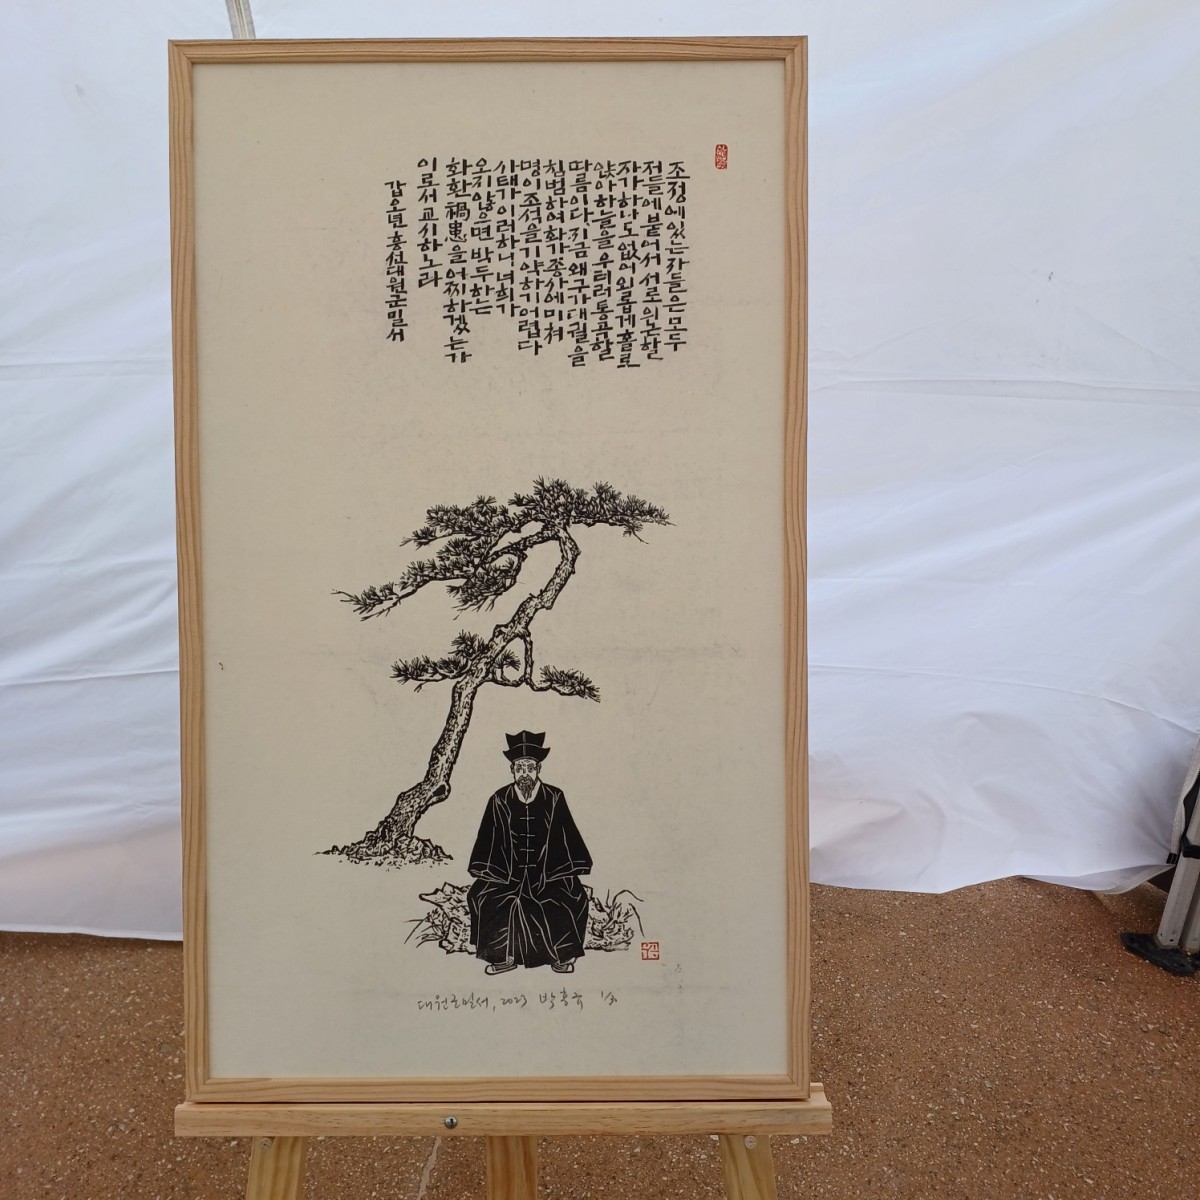 조정에있는자들은모두
저들에붙어서서로의논할
자가하나도없어외롭게홀로
앉아하늘을우러러통곡할
따름이다.지금왜구가대궐을
침범하여화가종사에미쳐
명이조석을기약하기어렵다
사태가이러하니너희가
오지않으면박두하는
화환禍患을어찌하겠는가
이로서교시하노라
갑오년흥선대원군밀서
대원군밀서, 2023 박홍규